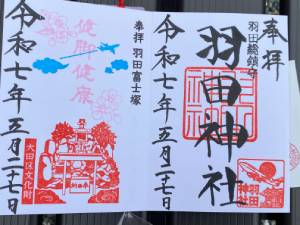 奉拝
羽田総鎮守
羽田神社
令和七年三月二十七日
羽田
神社
奉拝 羽田富士塚
健脚健康
令和七年三月二十七日
大田区文化財